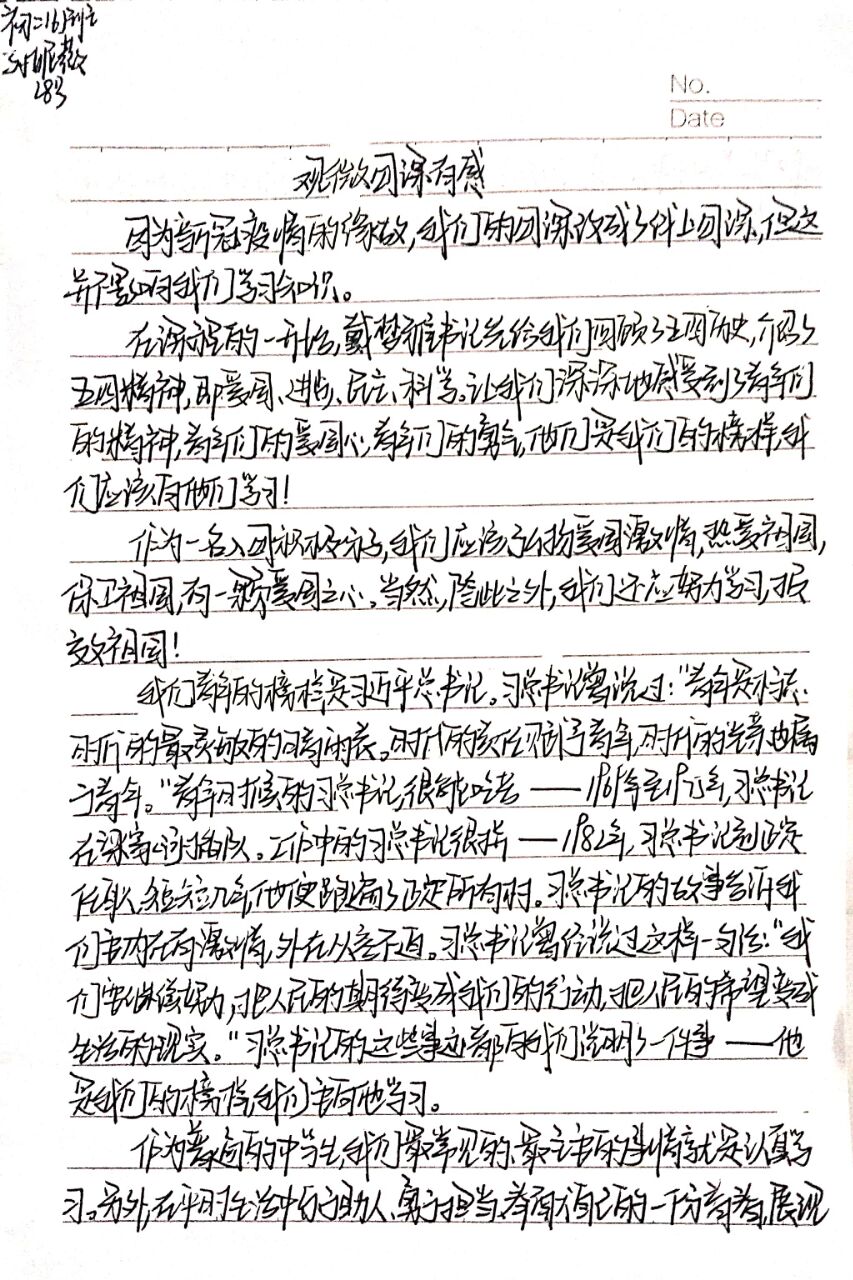 初二16刘
28号
No.
Date
观微团课有感
因为新冠疫情的缘故,我们的团课改成了线上团课,但这
并不影响我们学习知识。
在课程的一开始,戴梦雅书记先给我们回顾了五四历史,介绍了
五四精神,即爱国、进步、民主、科学。让我们深深地感受到了青年们
的精神,青年们的爱国心,青年们的勇气,他们是我们的榜样,我
们应该向他们学习!
作为一名入团积极分子,我们应该弘扬爱国激情,热爱祖国,
保卫祖国,有一颗爱国之心。当然,除此之外,我们还应努力学习,报
效祖国!
我们青年的榜样是习近平总书记。习总书记曾说过:“青年是标志
时代的最灵敏的晴雨表。时代的责任赋予青年,时代的光荣也属
于青年。”青年时候的习总书记,很能吃苦——1969年至1975年,习总书记
在梁家河插队。工作中的习总书记很拼——1982年,习总书记到正定
任职,短短几年,他便跑遍了正定所有村。习总书记的故事告诉我
们要内在有激情,外在从容不迫。习总书记曾经说过这样一句话:“我
们要继续努力,把人民的期待变成我们的行动,把人民的希望变成
生活的现实。”习总书记的这些事迹都向我们说明了一件事——他
是我们的榜样,我们要向他学习。
作为普通的中学生,我们最常见的、最主要的事情就是认真学
习。另外,在平时生活中乐于助人、勇于担当,奉献自己的一份青春,展现